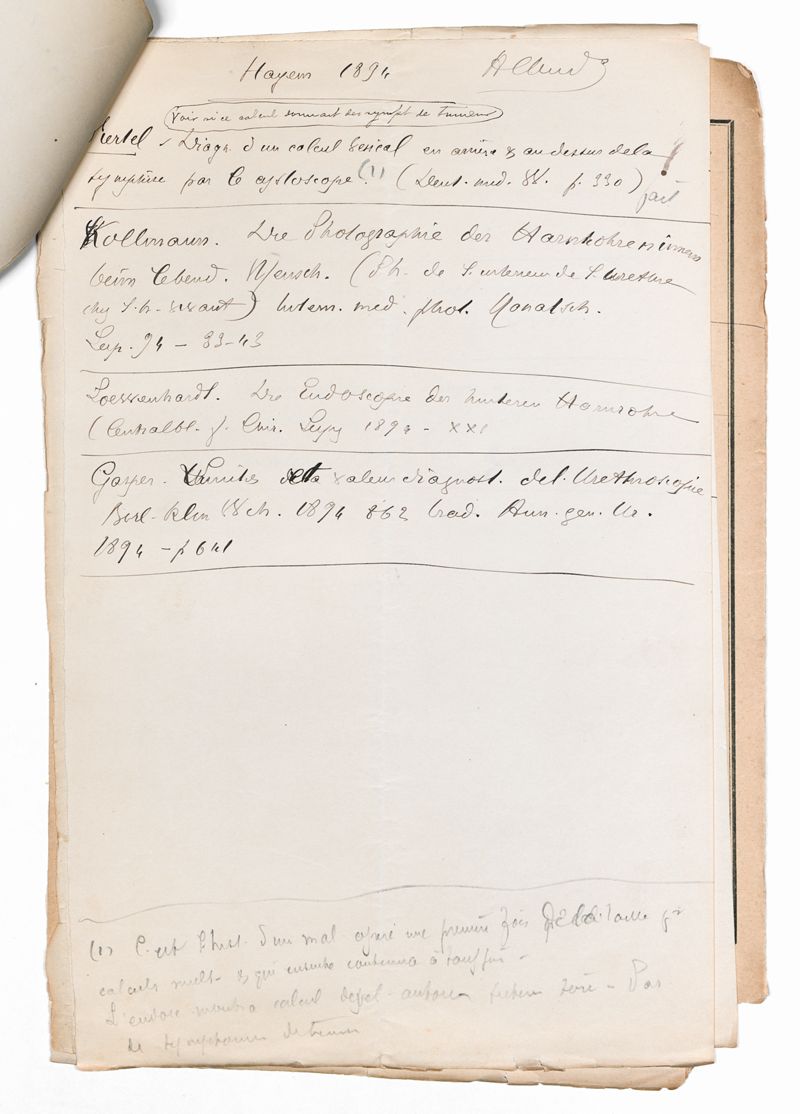 Hayem 1894
Voir si ce calcul donnait des sympt de tumeur
Viertel - Diagn. d'un calcul vesical en arrière & au dessus de la
symphise par le cystoscope. (1) (Deut. med. W. p. 330)
fait
Kollmann. Die Photographie des Harnrohreninnern
beim lebend. Mensch. (Ph. de l'interieur de l'urethre
chez l. h. vivant) Intern. med. phot. Monatsch.
Leip. 94 - 33-43
Loewenhardt. Die Endoscopie der hinteren Harnrohre
(Centralbl. f. Chir. Leipz 1894 - XXI
Casper. Limites de la valeur diagnost. de l'Urethroscopie
Berl. klin Wch. 1894 862 trad. Ann. gen. Ur.
1894 - p 641
(1) C. est l'hist. d'un mal opéré une première fois de la taille pr
calculs mult. & qui ensuite continua à souffrir -
L'endosc. montra calcul - Pas
de symptomes de tumeur